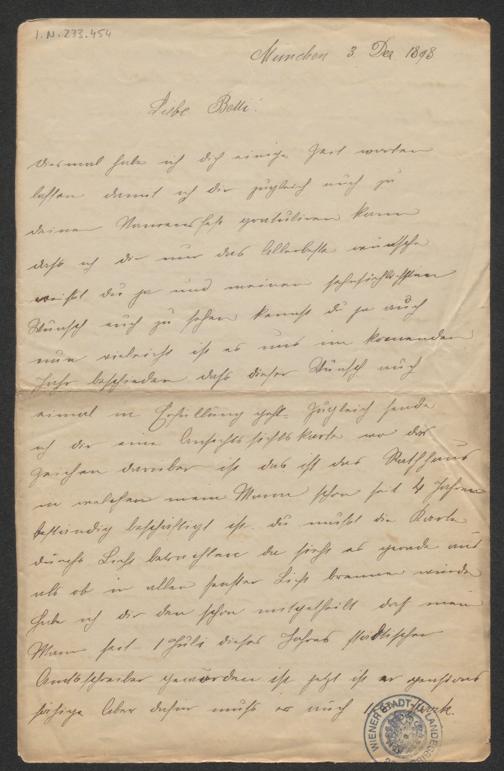 I.N. 233.454
München 3. Dez 1898
Liebe Betti!
diesmal habe ich dich einige Zeit warten
lassen damit ich dir zugleich auch zu
deinem Namensfest gratulieren kann
daß ich dir nur das Allerbeste wünsche
weißt du ja und meinen sehnsichtlichsten
Wunsch euch zu sehen kennst du ja auch
nun vieleicht ist es uns im komenden
Jahr beschieden daß dieser Wunsch auch
einmal in Erfüllung geht. Zugleich sende
ich dir eine Ansichtskarte wo das
Zeichen darüber ist das ist das Rathhaus
in welchem mein Mann schon seit 4 Jahren
beständig beschäftigt ist. du mußt die Karte
durchs Licht betrachten da sieht es gerade aus
als ob in allen Fenster Licht brennen würde
habe ich dir den schon mitgetheilt daß mein
Mann seit 1 Juli dieses Jahres städtischer
Amtsschreiber geworden ist jetzt ist er pensions
fähig. Aber dafür muß er auch
WIENER STADT- LANDESBIBL